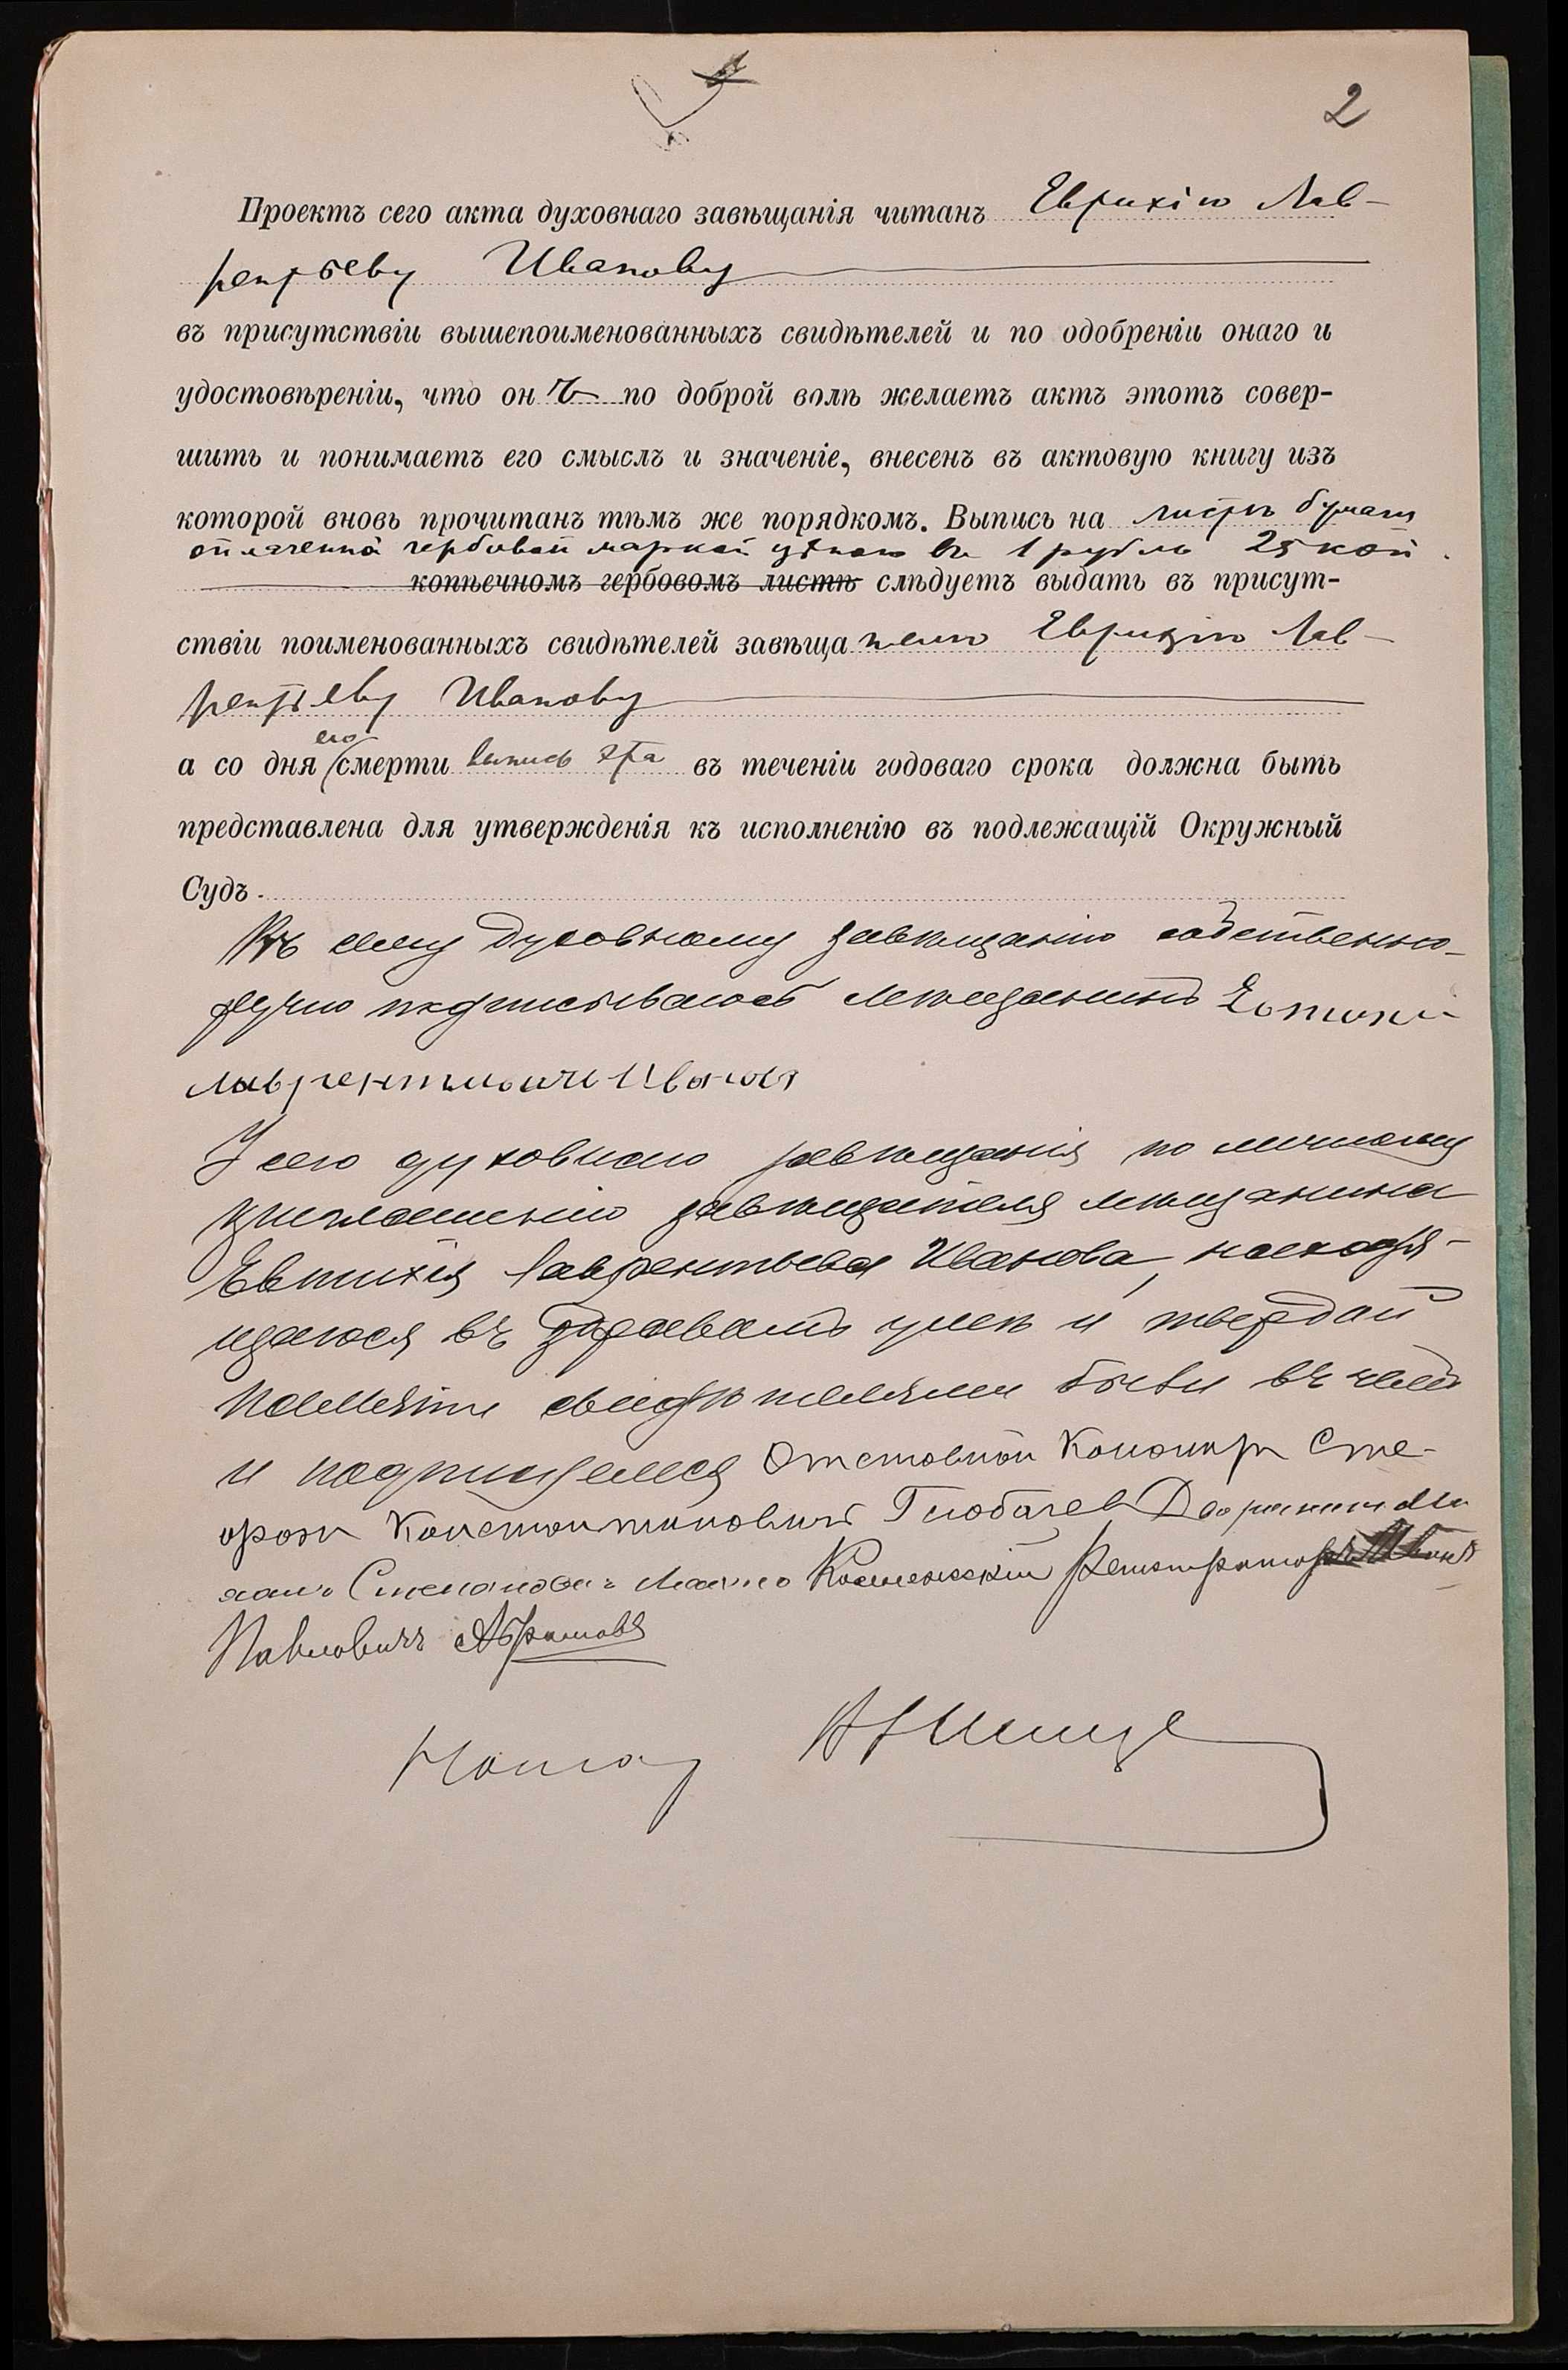 2
Проектъ сего акта духовнаго завѣщанія читанъ Евтихію Лав-
рентьеву Иванову
въ присутствіи вышепоименованныхъ свидѣтелей и по одобреніи онаго и
удостовѣреніи, что онъ по доброй волѣ желаетъ актъ этотъ совер-
шить и понимаетъ его смыслъ и значеніе, внесенъ въ актовую книгу изъ
которой вновь прочитанъ тѣмъ же порядкомъ. Выпись на листѣ бумаги
оплаченной гербовой маркой цѣною въ 1 рубль 25 коп.
копѣечномъ гербовомъ листѣ слѣдуетъ выдать въ присут-
ствіи поименованныхъ свидѣтелей завѣщателю Евтихію Лав-
рентьеву Иванову
его
а со дня смерти выпись эта въ теченіи годоваго срока должна быть
представлена для утвержденія къ исполненію въ подлежащій Окружный
Судъ.
Къ сему духовному завѣщанію собственно-
ручно подписываюсь мѣщанинъ
Лаврентьевичъ Ивановъ
У сего духовнаго завѣщанія по личному
приглашенію завѣщателя мѣщанина
Евтихія Лаврентьева Иванова, находя-
щагося въ здравомъ умѣ и твердой
памяти свидѣтелями были въ чемъ
и подпишемся Отставной
Константиновичъ Дворянинъ Ми
хаилъ Степановичъ Регистраторъ Иванъ
Павловичъ Абрамовъ